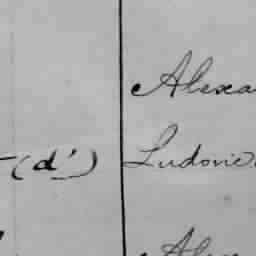 Alexa
(d') Ludovic
Alex